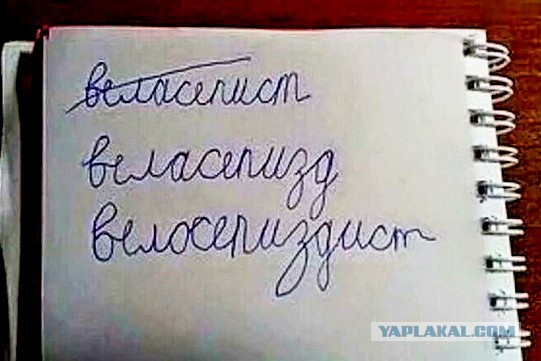 веласепист
веласепизд
велосепиздист
YAPLAKAL.COM